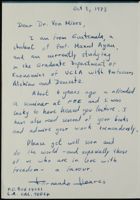 Oct 3, 1973
Dear Dr. Von Mises:
I am from Guatemala, a
student of Prof. Manuel Ayau,
and am currently studying
in the Graduate Department of
Economics at UCLA with Professors
Alchian and Demsetz.
About 6 years ago I attended
a seminar at FEE and I was
lucky to have heard you lecture. I
have also read several of your books
and admire your work tremendously.
Please get well soon and
do the world - and especially those
of us who are in love with
freedom - a favor.
Fernando Linares
P.O. Box
L.A. CAL.